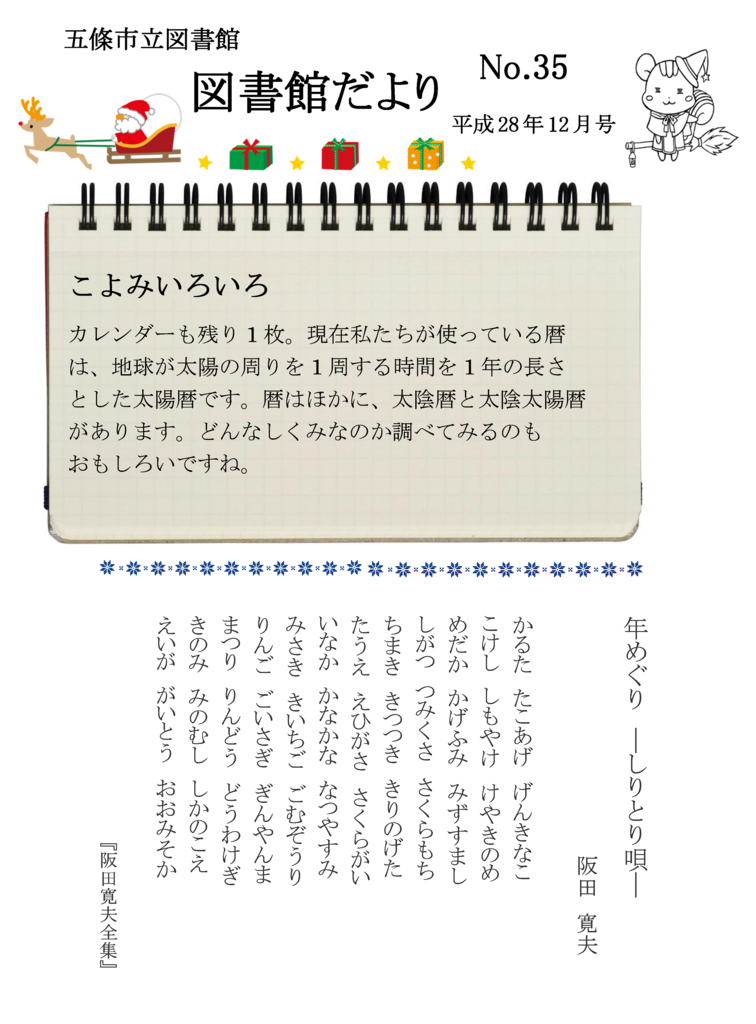 五條市立図書館
図書館だより
No.35
平成28年12月号
こよみいろいろ
カレンダーも残り1枚。現在私たちが使っている暦
は、地球が太陽の周りを1周する時間を1年の長さ
とした太陽暦です。暦はほかに、太陰暦と太陰太陽暦
があります。どんなしくみなのか調べてみるのも
おもしろいですね。
年めぐり ―しりとり唄―
阪田 寛夫
かるた たこあげ げんきなこ
こけし しもやけ けやきのめ
めだか かげふみ みずすまし
しがつ つみくさ さくらもち
ちまき きつつき きりのげた
たうえ えひがさ さくらがい
いなか かなかな なつやすみ
みさき きいちご ごむぞうり
りんご ごいさぎ ぎんやんま
まつり りんどう どうわけぎ
きのみ みのむし しかのこえ
えいが がいとう おおみそか
『阪田寛夫全集』